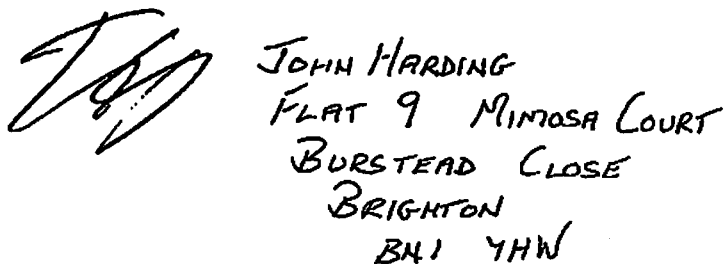 JOHN HARDING
FLAT 9 MIMOSA COURT
BURSTEAD CLOSE
BRIGHTON
BN1 7HW